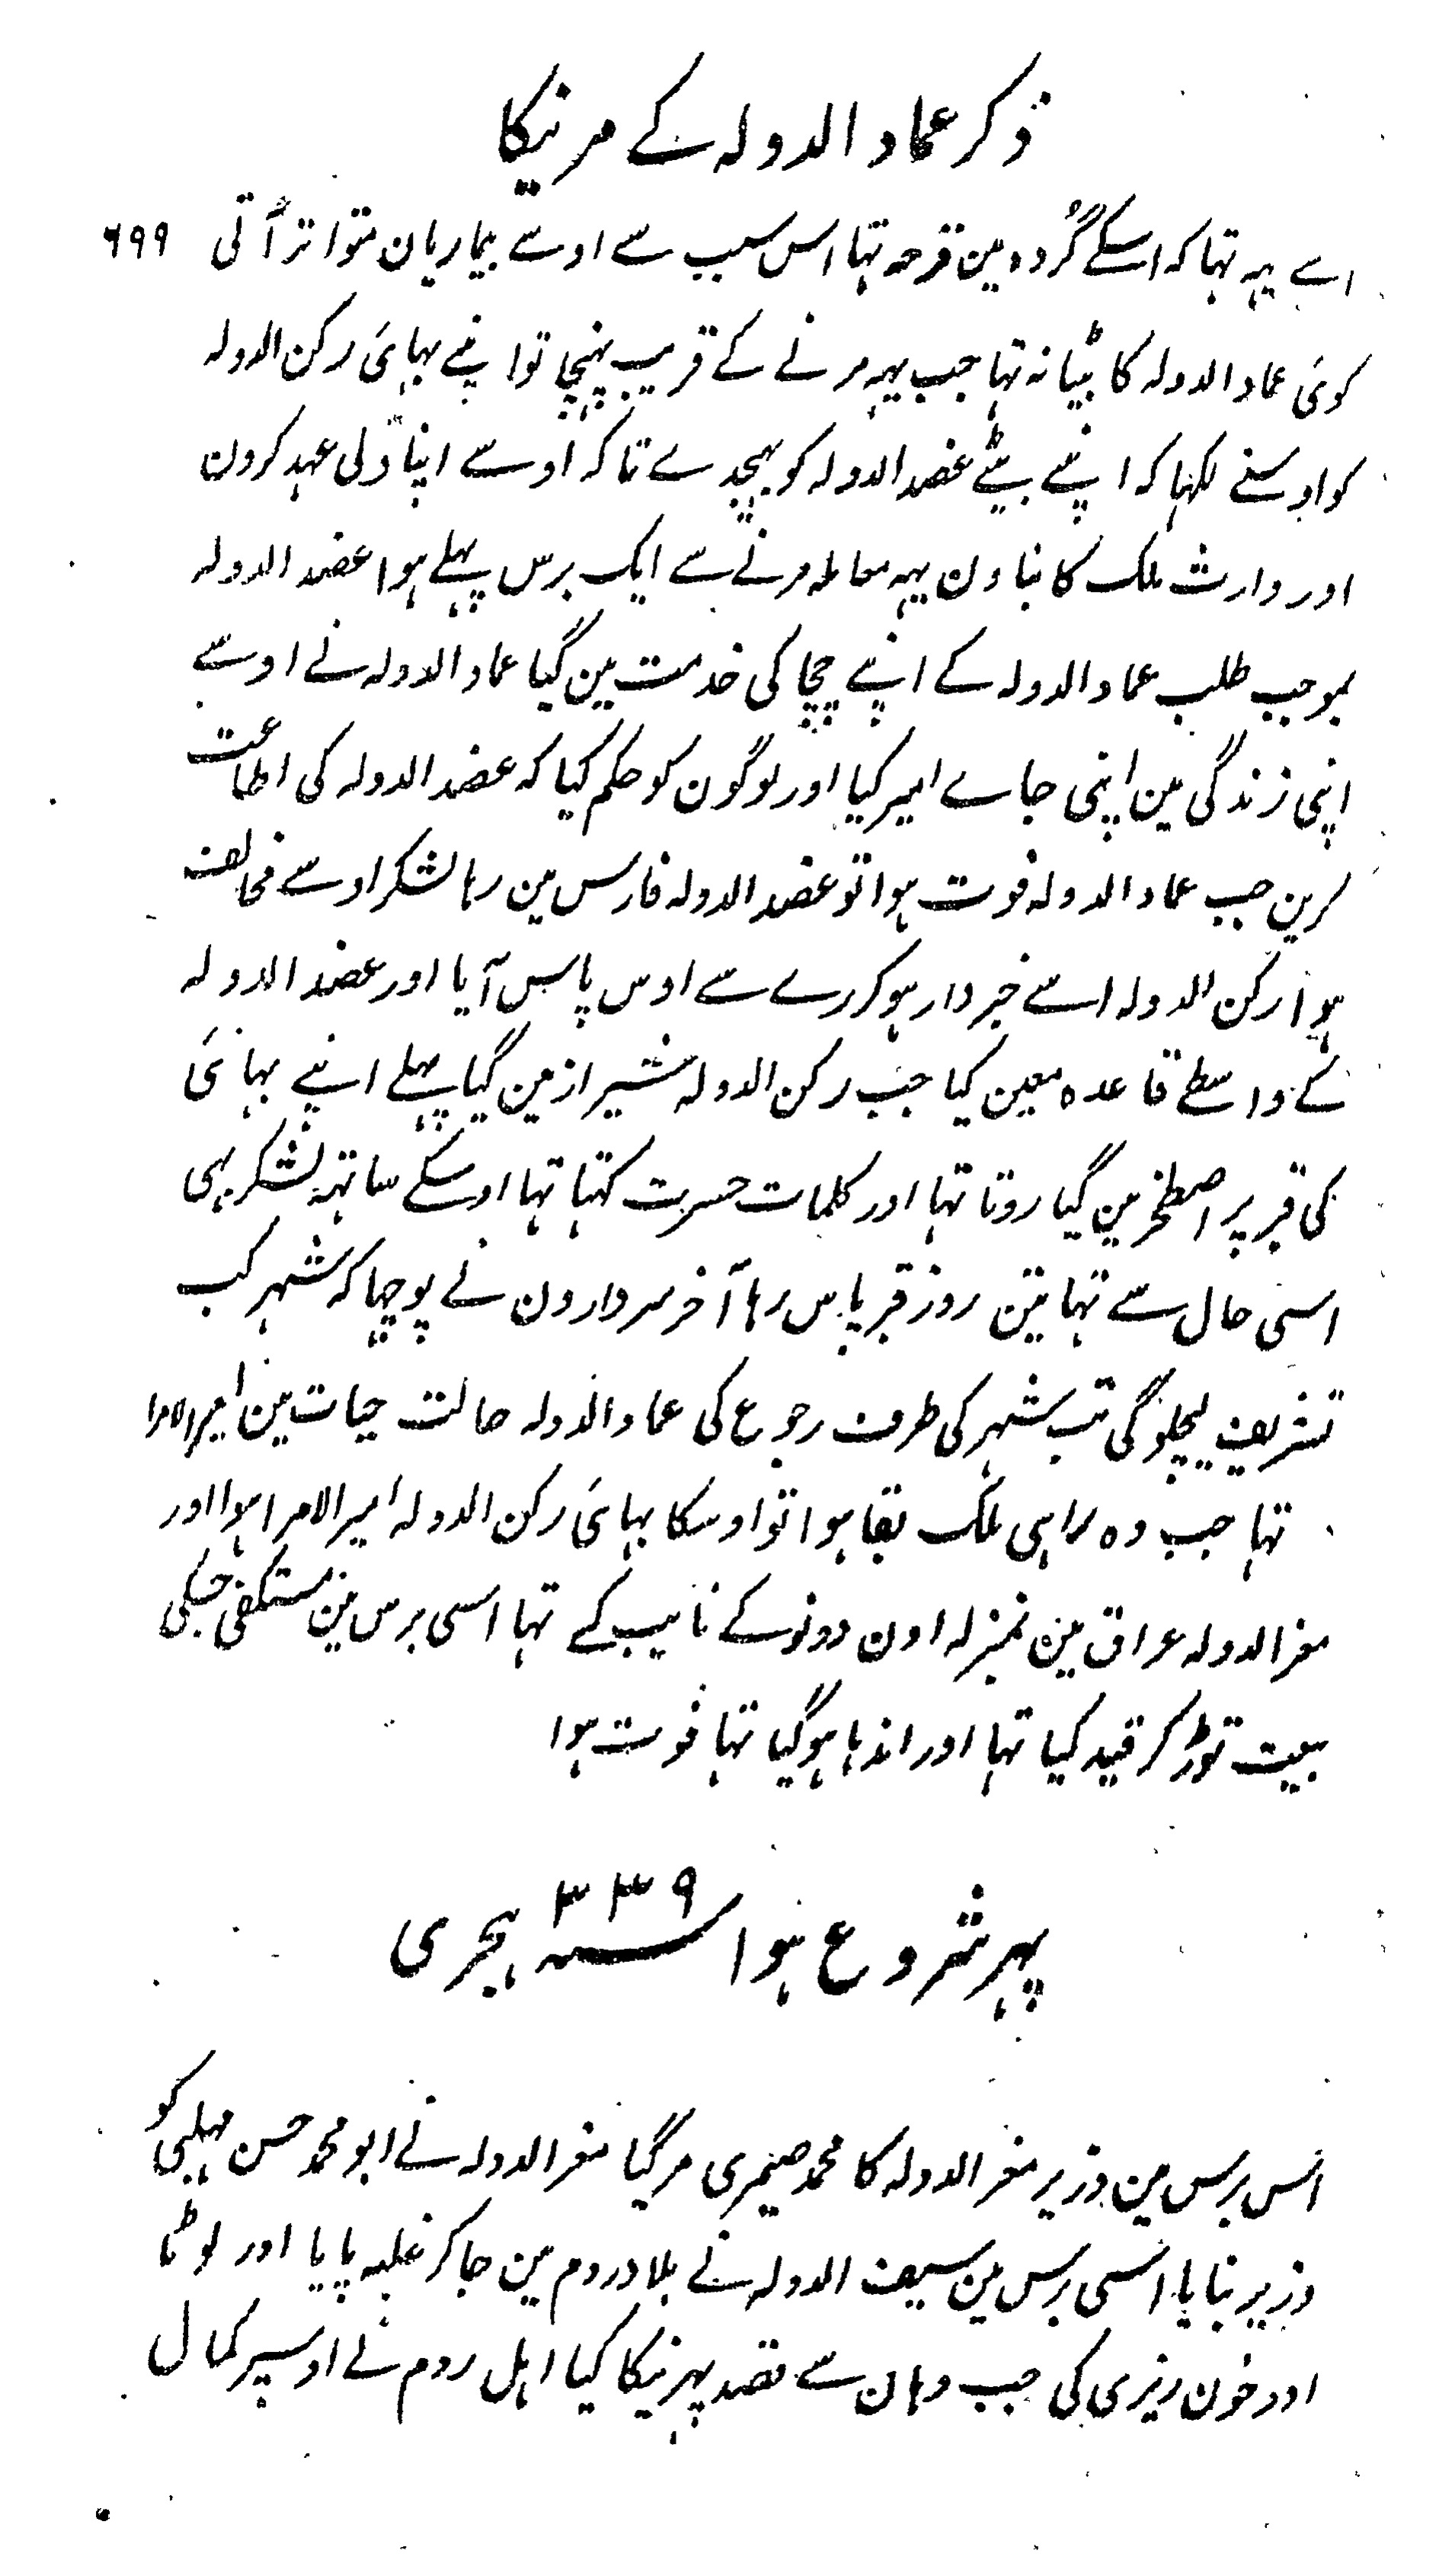 ذکر عماد الدولہ کے مرنیکا
اے یہہ تہا کہ اسکے گُردہ مین قرحہ تہا اس سبب سے اوسے بیماریان متواتر آتی ۶۹۹
کوئی عماد الدولہ کا بیٹا نہ تہا جب یہہ مرنے کے قریب پہنچا تو اپنے بہائی رکن الدولہ
کو اوسنے لکہا کہ اپنے بیٹے عضد الدولہ کو بہیجدے تاکہ اوسے اپنا ولی عہد کرون
اور وارث ملک کا بناون یہہ معاملہ مرنے سے ایک برس پہلے ہوا عضد الدولہ
بموجب طلب عماد الدولہ کے اپنے چچا کی خدمت مین گیا عماد الدولہ نے اوسے
اپنی زندگی مین اپنی جاے امیر کیا اور لوگون کو حکم کیا کہ عضد الدولہ کی اطاعت
کرین جب عماد الدولہ فوت ہوا تو عضد الدولہ فارس مین رہا لشکر اوسے مخالف
ہوا رکن الدولہ اسے خبردار ہوکر رے سے اوس پاس آیا اور عضد الدولہ
کے واسطے قاعدہ معین کیا جب رکن الدولہ شیراز مین گیا پہلے اپنے بہائی
کی قبر پر اصطخر مین گیا روتا تہا اور کلمات حسرت کہتا تہا اوسکے ساتہہ لشکر بہی
اسی حال سے تہا تین روز قبر پاس رہا آخر سردارون نے پوچہا کہ شہر کب
تشریف لیچلوگی تب شہر کی طرف رجوع کی عماد الدولہ حالت حیات مین امیر الامرا
تہا جب وہ راہی ملک بقا ہوا تو اوسکا بہائی رکن الدولہ امیر الامرا ہوا اور
معز الدولہ عراق مین بمنزلہ اون دونو کے نایب کے تہا اسی برس مین مستکفی جسکی
بیعت توڑ کر قید کیا تہا اور اندہا ہوگیا تہا فوت ہوا
پہر شروع ہوا سنہ ۳۳۹ ہجری
اس برس مین وزیر معز الدولہ کا محمد صیمری مرگیا معز الدولہ نے ابو محمد حسن مہلبی کو
وزیر بنایا اسی برس مین سیف الدولہ نے بلاد روم مین جاکر غلبہ پایا اور لوٹا
اور خون ریزی کی جب وہان سے قصد پہرنیکا کیا اہل روم نے اوسپر کمال